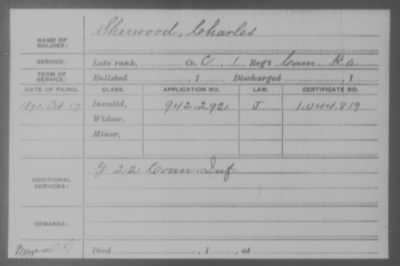 NAME OF SOLDIER: Sherwood, Charles
SERVICE: Late rank, Co. C, 1 Reg't Conn. H. a.
TERM OF SERVICE: Enlisted , 1 Discharged , 1
DATE OF FILING. CLASS. APPLICATION NO. LAW. CERTIFICATE NO.
1890, Oct 17 Invalid, 942.292 J 1.044.819
Widow,
Minor,
ADDITIONAL SERVICES: G 22 Conn Inf
REMARKS:
Died , 1 , at